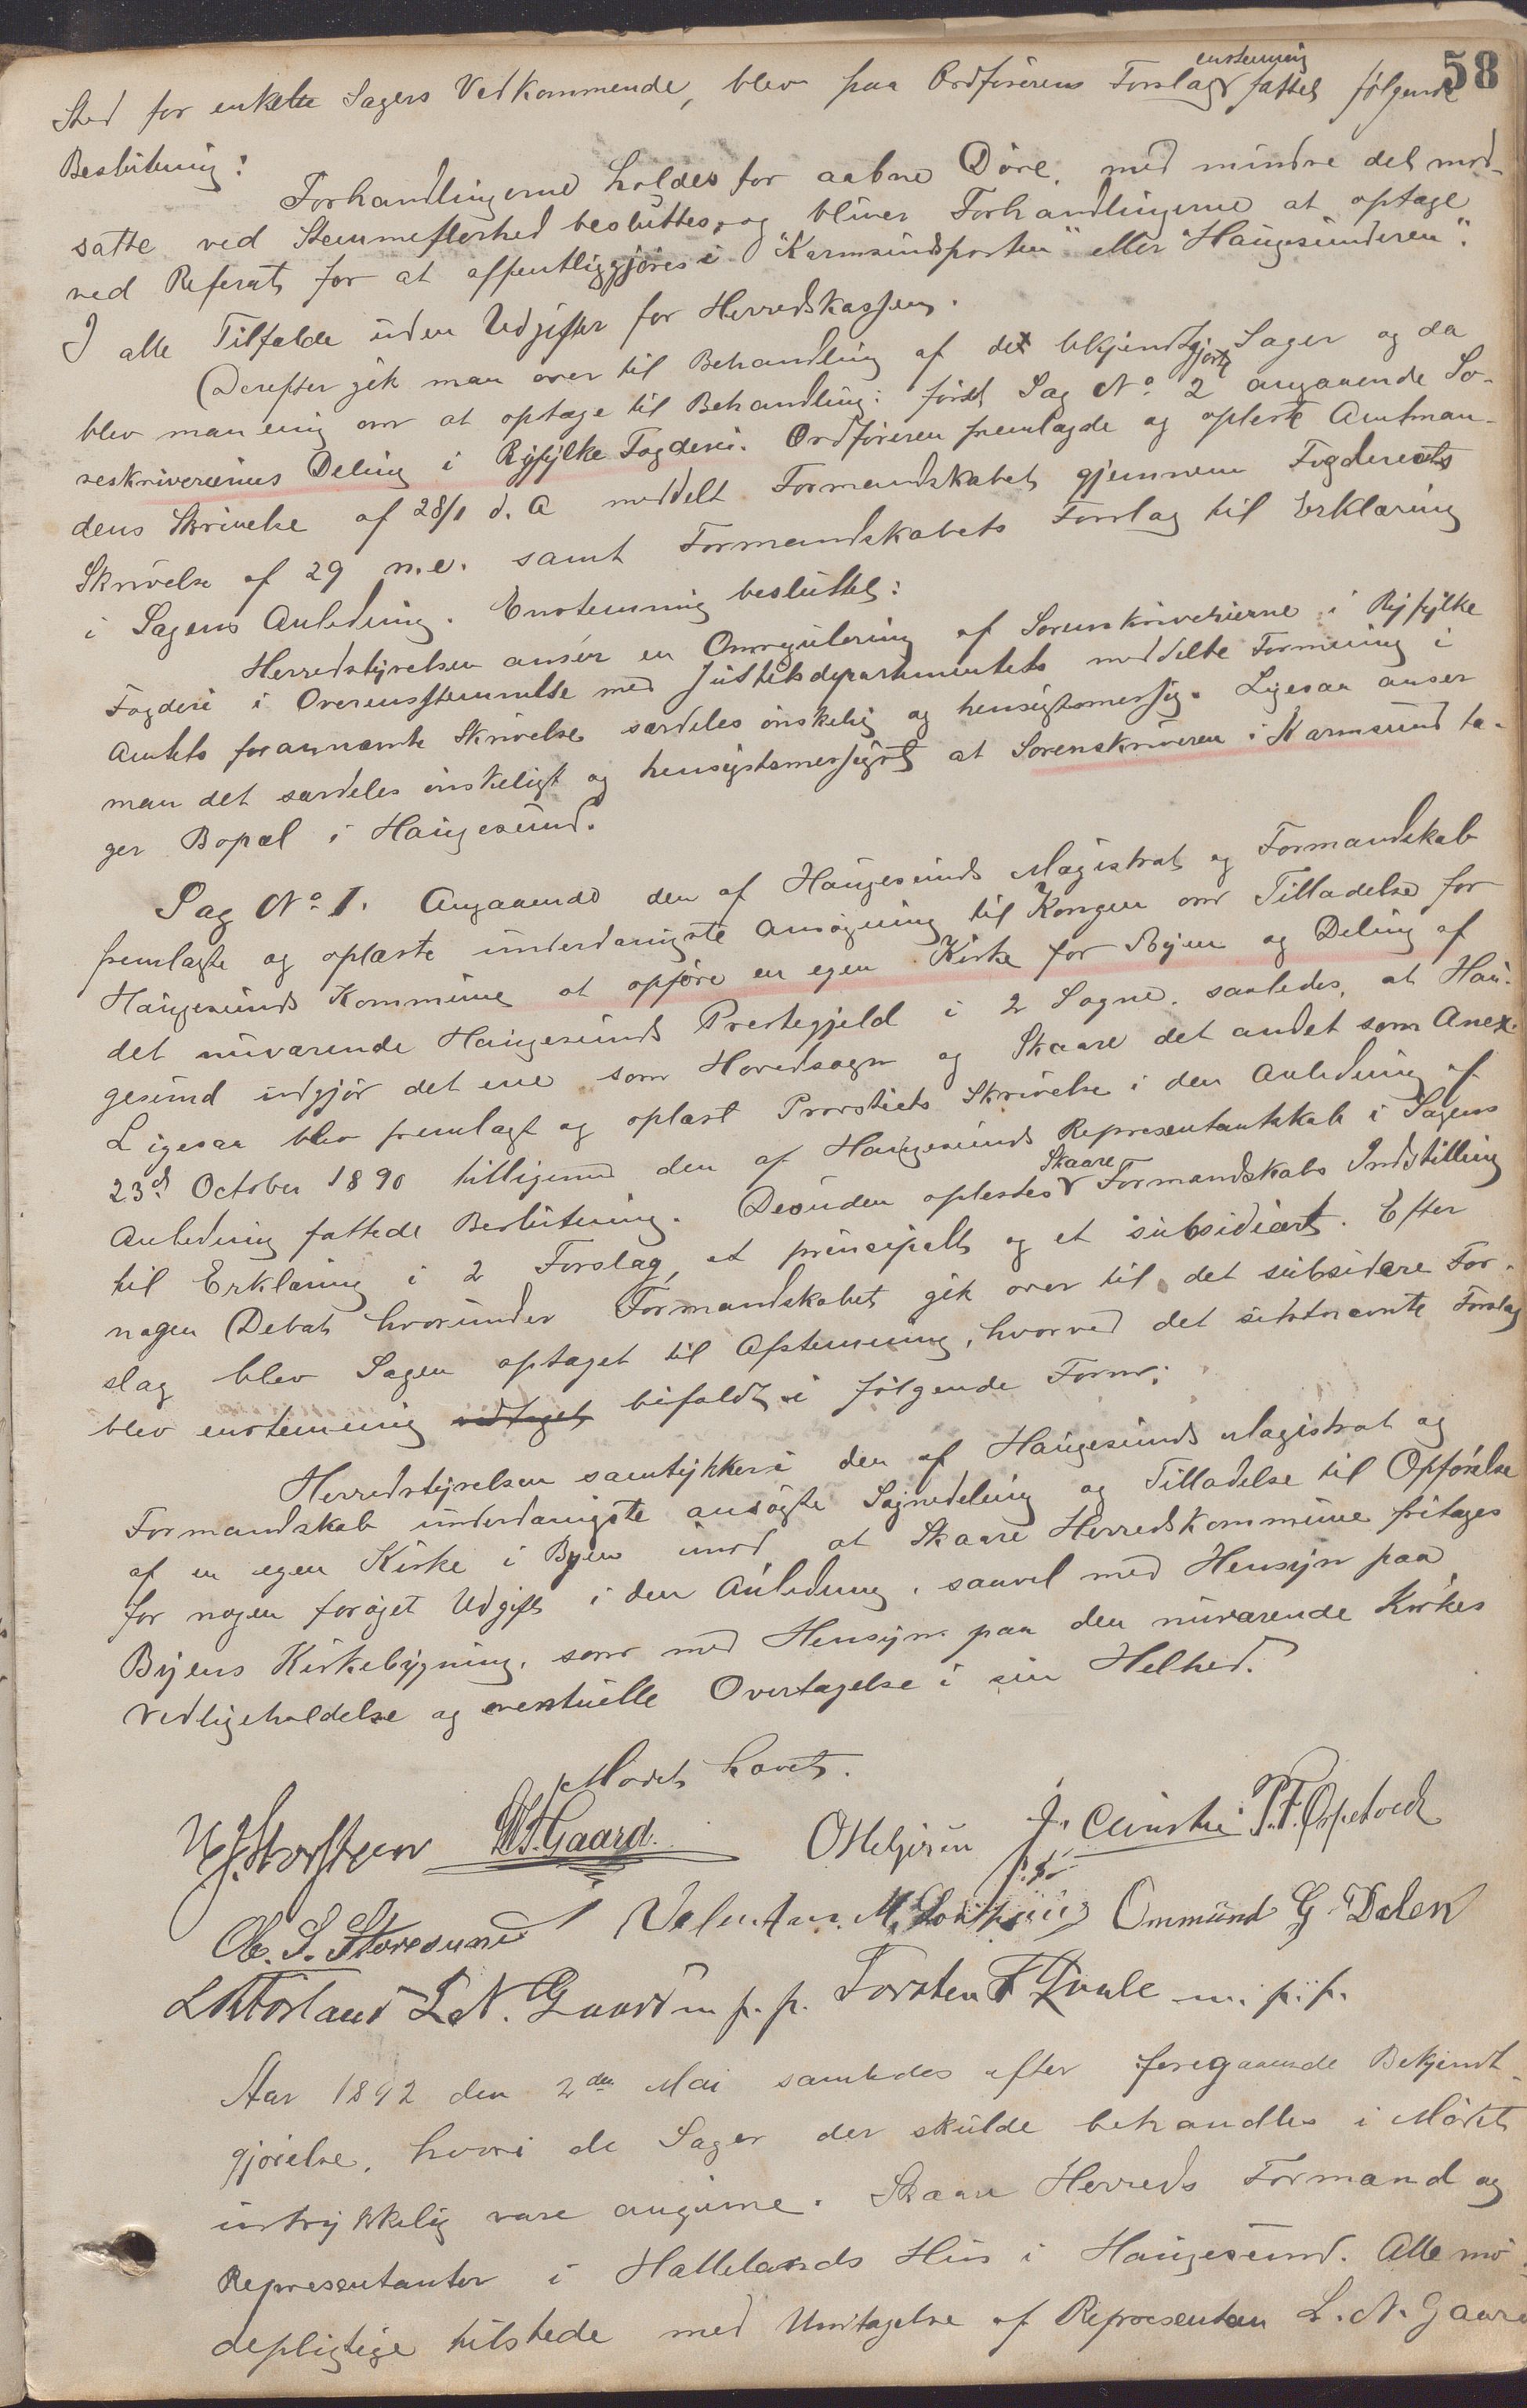 58
Sted for enkelte Sagers Vedkommende, blev paa Ordførerens Forslag enstemmig fattet følgende
Beslutning:
Forhandlingerne holdes for aabne Døre, med mindre det mod-
satte ved Stemmeflerhed besluttes, og bliver Forhandlingerne at optage
ved Referat for at offentliggjøres i "Karmsundsposten" eller "Haugesunderen".
I alle Tilfælde uden Udgifter for Herredskassen.
Derefter gik man over til Behandling af de bekjendtgjorte Sager og da
blev man enig om at optage til Behandling: først Sag No. 2 angaaende So-
reskriveriernes Deling i Ryfylke Fogderi. Ordføreren fremlagde og oplæste Amtman-
dens Skrivelse af 28/1 d. A meddelt Formandskabet gjennem Fogderiets
Skrivelse af 29 n.e. samt Formandskabets Forslag til Erklæring
i Sagens Anledning. Enstemmig besluttet:
Herredstyrelsen anser en Omregulering af Sorenskriverierne i Ryfylke
Fogderi i Overensstemmelse med Justitsdepartementets meddelte Formening i
Amtets forannævnte Skrivelse særdeles ønskelig og hensigtsmessig. Ligesaa anser
man det særdeles ønskeligt og hensigtsmessigst at Sorenskriveren i Karmsund ta-
ger Bopæl i Haugesund.
Sag No. 1. Angaaende den af Haugesunds Magistrat og Formandskab
fremlagte og oplæste underdanigste Ansøgning til Kongen om Tilladelse for
Haugesunds Kommune at opføre en egen Kirke for Byen og Deling af
det nuværende Haugesunds Prestegjeld i 2 Sogne, saaledes, at Hau-
gesund udgjør det ene som Hovedsogn og Skaare det andet som Anex.
Ligesaa blev fremlagt og oplæst Provstiets Skrivelse i den Anledning af
23d October 1890 tilligemed den af Haugesunds Representantskab i Sagens
Anledning fattede Beslutning. Desuden oplestes Skaare Formandskabs Indstilling
til Erklæring i 2 Forslag, et principalt og et subsidiært. Efter
nogen Debat hvorunder Formandskabet gik over til det subsidære For-
slag blev Sagen optaget til Afstemning, hvorved det sidstnævnte Forslag
blev enstemmig vedtaget bifaldt i følgende Form:
Herredstyrelsen samtykker i den af Haugesunds Magistrat og
Formandskab underdanigste ansøgte Sognedeling og Tilladelse til Opførelse
af en egen Kirke i Byen imod at Skaare Herredskommune fritages
for nogen forøget Udgift i den Anledning, saavel med Hensyn paa
Byens Kirkebygning, som med Hensyn paa den nuværende Kirkes
Vedligeholdelse og eventuelle Overtagelse i sin Helhed.
Mødet hævet.
Gaard. J. Christie P. T.
Ole. S. Storesund Valentin. M. Ommund G. Dalen
L. N. Gaard m. p. p. Torsten T Qvale m. p. p.
Aar 1892 den 2den Mai samledes efter foregaaende Bekjendt-
gjørelse, hvori de Sager der skulde behandles i Mødet
udtrykkelig vare angivne. Skaare Herreds Formand og
Representanter i Hallelands Hus i Haugesund. Alle mø-
depligtige tilstede med Undtagelse af Repræsentan L. N. Gaard